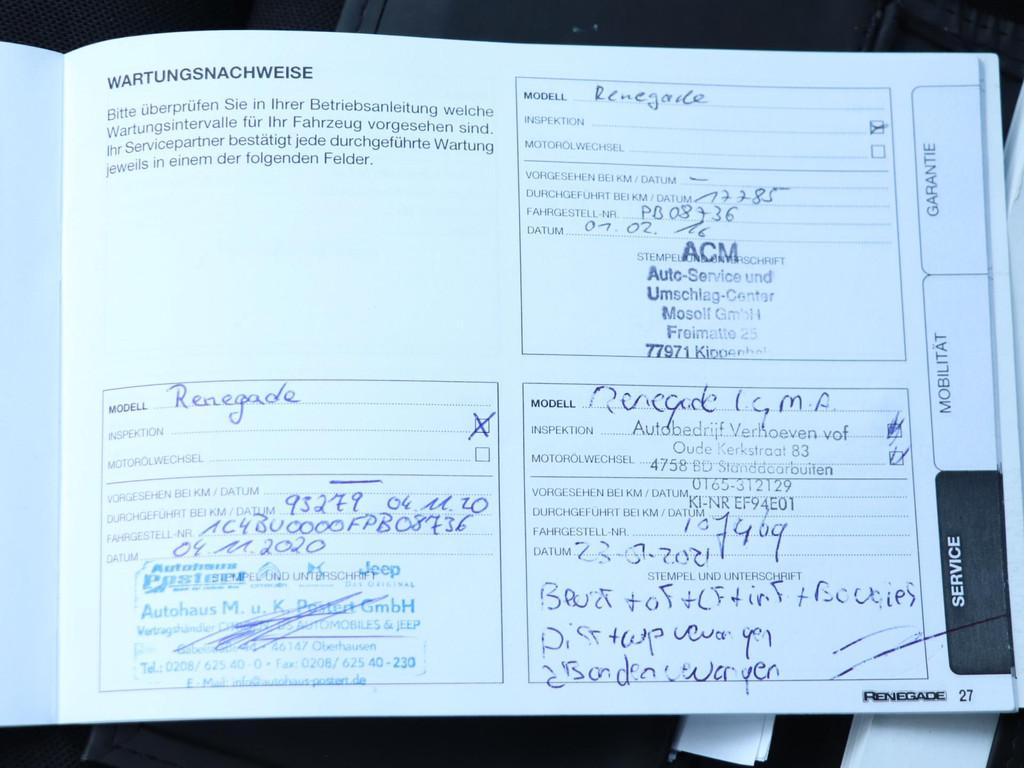 WARTUNGSNACHWEISE
Bitte überprüfen Sie in Ihrer Betriebsanleitung welche
Wartungsintervalle für Ihr Fahrzeug vorgesehen sind.
Ihr Servicepartner bestätigt jede durchgeführte Wartung
jeweils in einem der folgenden Felder.
MODELL Renegade
INSPEKTION
MOTORÖLWECHSEL
VORGESEHEN BEI KM / DATUM —
DURCHGEFÜHRT BEI KM / DATUM 17785
FAHRGESTELL-NR. PB08736
DATUM 01.02.16
STEMPEL UND UNTERSCHRIFT
ACM
Auto-Service und
Umschlag-Center
Mosolf GmbH
Freimatte 25
77971 Kippenheim
MODELL Renegade
INSPEKTION
MOTORÖLWECHSEL
VORGESEHEN BEI KM / DATUM —
DURCHGEFÜHRT BEI KM / DATUM 93279 04.11.20
FAHRGESTELL-NR. 1C4BU0000FPB08736
DATUM 04.11.2020
STEMPEL UND UNTERSCHRIFT
Autohaus
Postert
Jeep
Autohaus M. u. K. Postert GmbH
Vertragshändler AUTOMOBILES & JEEP
46147 Oberhausen
Tel.: 0208/ 625 40 - 0 · Fax: 0208/ 625 40 - 230
E-Mail: info@autohaus-postert.de
MODELL Renegade
INSPEKTION Autobedrijf Verhoeven vof
Oude Kerkstraat 83
MOTORÖLWECHSEL 4758 BD Standdaarbuiten
0165-312129
VORGESEHEN BEI KM / DATUM
KI-NR EF94E01
DURCHGEFÜHRT BEI KM / DATUM 107409
FAHRGESTELL-NR.
DATUM 23-07-2021
STEMPEL UND UNTERSCHRIFT
+ Bougies
GARANTIE
MOBILITÄT
SERVICE
RENEGADE 27